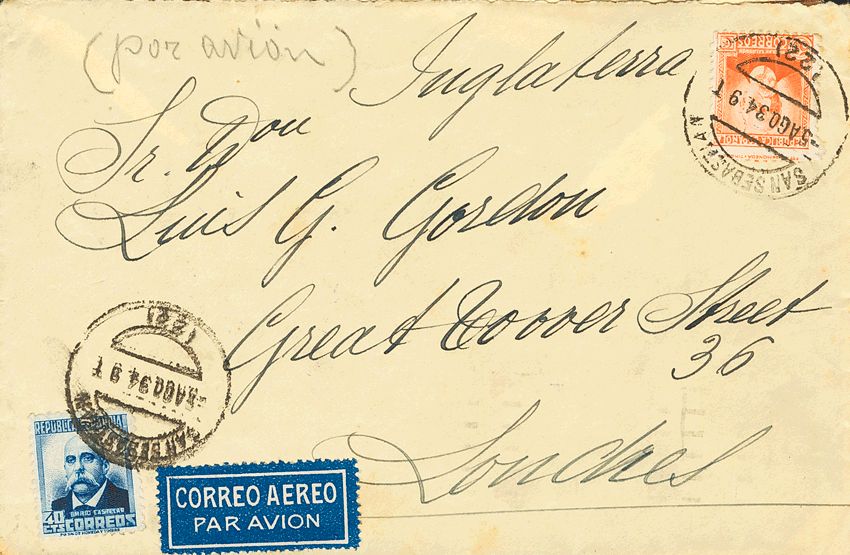 (por avión)
Inglaterra
Sr. Don
Luis G. Gordon
Great Tower Street
36
Londres
CORREOS
SAN SEBASTIAN
5 AGO 34 9 T
(22)
SAN SEBASTIAN
5 AGO 34 9 T
(22)
EMILIO CASTELAR
40
CTS CORREOS
CORREO AEREO
PAR AVION